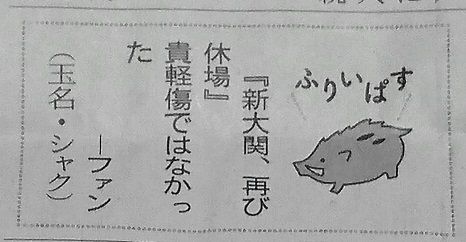 ふりいぱす
『新大関、再び
休場』
貴軽傷ではなかっ
た
―ファン
(玉名・シャク)